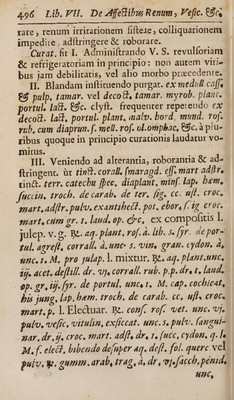 496 Lib. VII. De Affectibus Renum, Vesic. &c.
rare, renum irritationem sisteae, colliquationem
impedire, adstringere & roborare.
Curat. fit I. Administrando V. S. revulsoriam
& refrigeratoriam in principio: non autem viri-
bus jam debilitatis, vel alio morbo præcedente.
II. Blandam instituendo purgat. ex medull cass.
& pulp. tamar. vel decoct. tamar. myrob. plant.
portul. lact. &c. clyst. frequenter repetendo ex
decoct. lact. portul. plant. malv. hord. mund. ros.
rub. cum diaprun. s. mell. ros. ol. omphac. &c. à plu-
ribus quoque in principio curationis laudatur vo-
mitus.
III. Veniendo ad alterantia, roborantia & ad-
stringent. ùt tinct. corall. smaragd. ess. mart adstr.
tinct. terr. catechu spec. diaplant. mins. lap. hæm.
succin. troch. de carab. de ter. sig. cc. ust. croc.
mart. adstr. pulv. exanthect. pot. ebor. s. ig croc.
mart. cum gr. 1. laud. op. &c. ex compositis l.
julep. v. g. ℞. aq. plant. ros. à. lib. s. syr. de por-
tul. agrest. corrall. à. unc s. vin. gran. cydon. à.
unc. 1. M. pro julap. l. mixtur. ℞. aq. plant. unc.
iij. acet. destill. dr. vj. corrall. rub. p. p. dr. 1. laud.
op. gr. iij. syr. de portul. unc. 1. M. cap. cochleat.
bis jung. lap. hæm. troch. de carab. cc. ust. croc.
mart. p. l. Electuar. ℞. cons. ros. vet. unc. vj.
pulv. vesic. vitulin. exsiccat. unc. s. pulv. sangui-
nar. dr. ij. croc. mart. adst. dr. 1. succ. cydon. q. l.
M. f. elect. bibendo desuper aq. dest. fol. querc vel
pulv. ℞. gumm. arab. trag. à. dr. vj. sacch. penid.
unc.